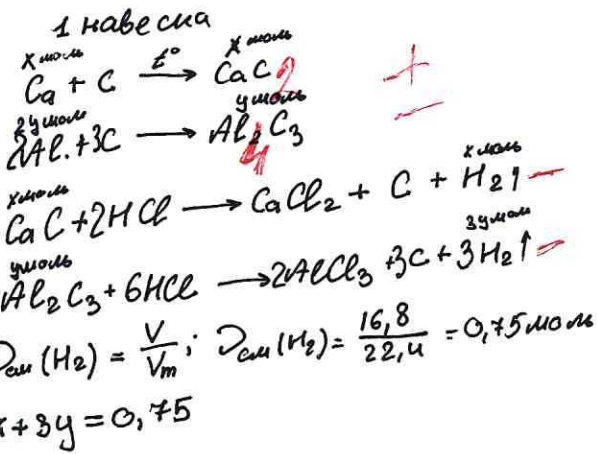 1 навеска
x моль x моль
Ca + C t° → CaC 2 +
2y моль y моль
2Al + 3C → Al₂C₃ 4 −
x моль x моль
CaC + 2HCl → CaCl₂ + C + H₂↑ −
y моль 3y моль
Al₂C₃ + 6HCl → 2AlCl₃ + 3C + 3H₂↑ −
νсм (H₂) = V/Vm; νсм (H₂) = 16,8/22,4 = 0,75 моль
x + 3y = 0,75